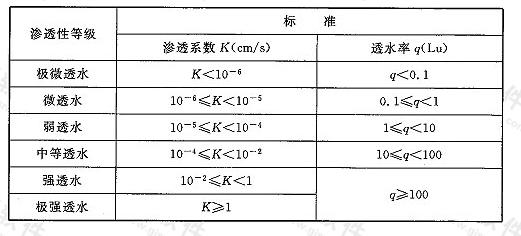 渗透性等级 标 准
渗透系数 K(cm/s) 透水率 q(Lu)
极微透水 K<10⁻⁶ q<0.1
微透水 10⁻⁶≤K<10⁻⁵ 0.1≤q<1
弱透水 10⁻⁵≤K<10⁻⁴ 1≤q<10
中等透水 10⁻⁴≤K<10⁻² 10≤q<100
强透水 10⁻²≤K<1 q≥100
极强透水 K≥1